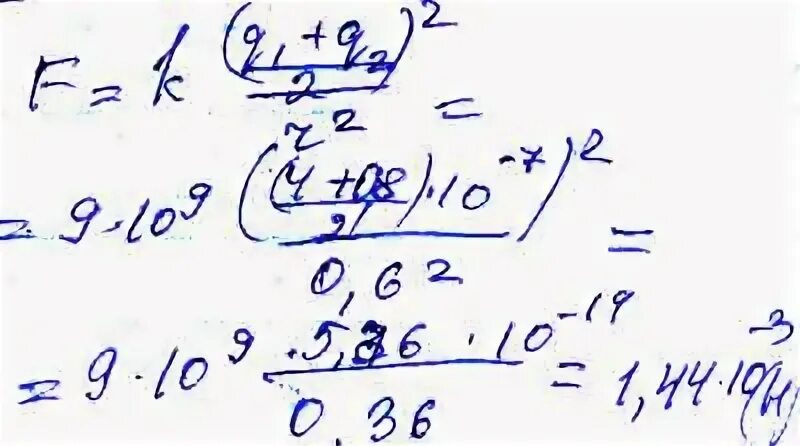 F = k ((q₁ + q₂)/2)² / r² =
= 9·10⁹ ((4 + 0,8)/2 · 10⁻⁷)² / 0,6² =
= 9·10⁹ · 5,76 · 10⁻¹⁴ / 0,36 = 1,44·10⁻³ (Н)